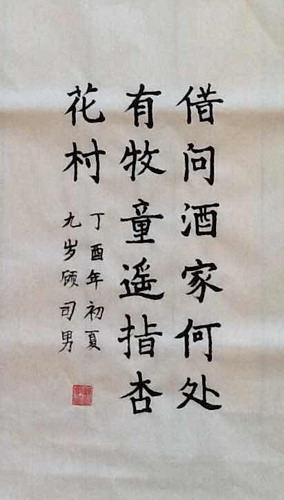 借问酒家何处
有牧童遥指杏
花村
丁酉年初夏
九岁颂司男